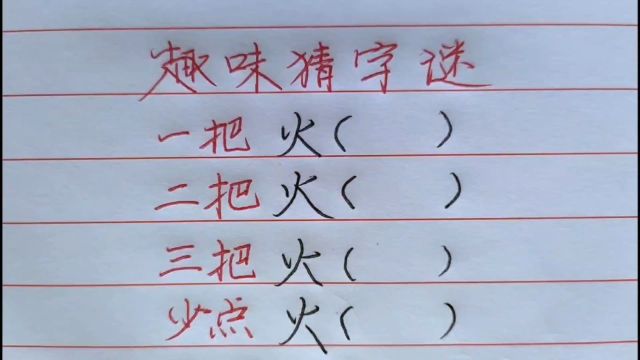 趣味猜字谜
一把火( )
二把火( )
三把火( )
少点火( )